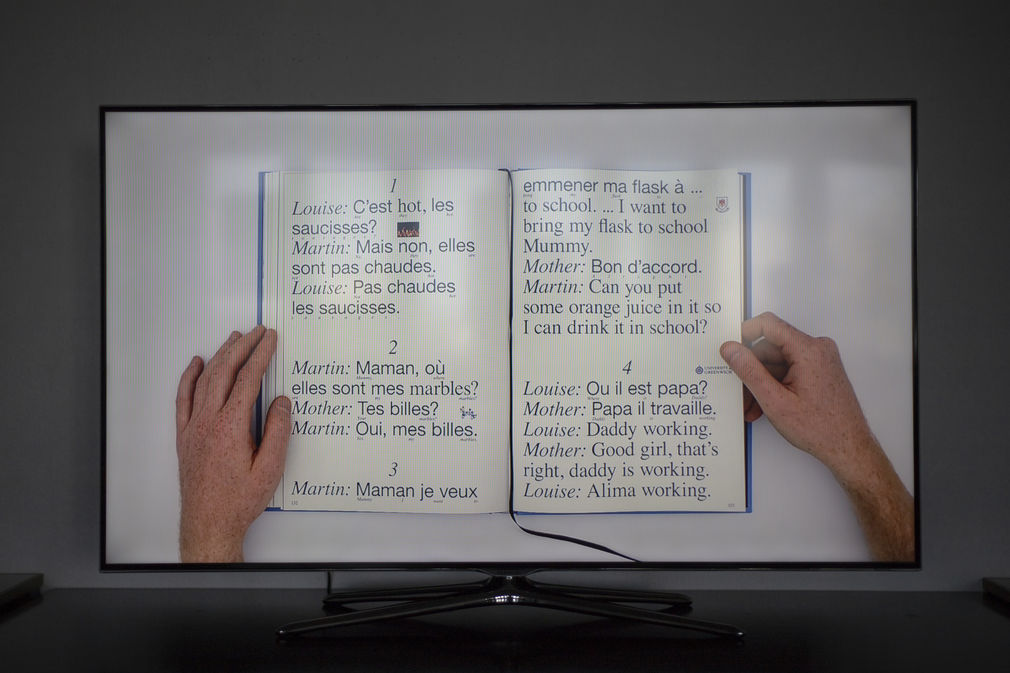 1
Louise: C'est hot, les
saucisses?
Martin: Mais non, elles
sont pas chaudes.
Louise: Pas chaudes
les saucisses.
2
Martin: Maman, où
elles sont mes marbles?
Mother: Tes billes?
Martin: Oui, mes billes.
3
Martin: Maman je veux
132
emmener ma flask à ...
to school. ... I want to
bring my flask to school
Mummy.
Mother: Bon d'accord.
Martin: Can you put
some orange juice in it so
I can drink it in school?
4
UNIVERSITY
GREENWICH
Louise: Ou il est papa?
Mother: Papa il travaille.
Louise: Daddy working.
Mother: Good girl, that's
right, daddy is working.
Louise: Alima working.